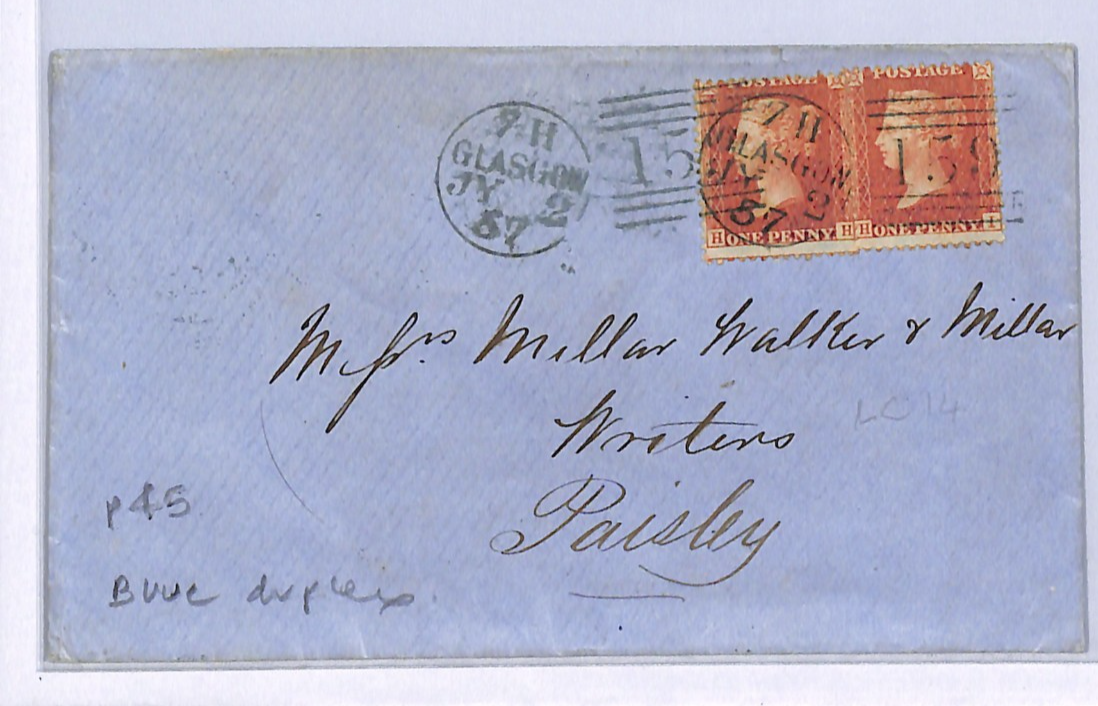 POSTAGE POSTAGE
7 H
GLASGOW
JY 2
57
159
7 H
GLASGOW
JY 2
57
159
H ONE PENNY H
H ONE PENNY I
Messrs Millar Walker & Millar
Writers
LC14
Paisley
p45
Blue duplex